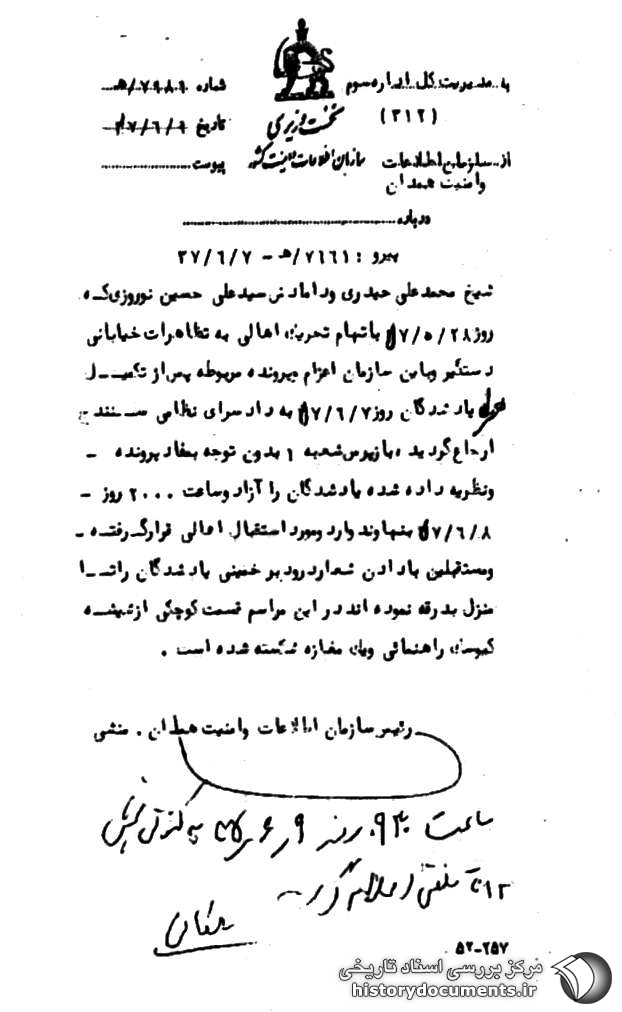 به مدیریت کل اداره سوم
(۳۱۲)
از سازمان اطلاعات
و امنیت همدان
نخست وزیری
سازمان اطلاعات و امنیت کشور
شماره ۷۹۸۹/هـ
تاریخ ۳۷/۶/۹
پیوست
درباره
پیرو : ۷۶۶۱/هـ - ۳۷/۶/۷
شیخ محمدعلی حیدری و دامادش سیدعلی حسین نوروزی که
روز ۳۷/۵/۲۸ باتهام تحریک اهالی به تظاهرات خیابانی
دستگیر و باین سازمان اعزام و پرونده مربوطه پس از تکمیل
یاد شدگان روز ۳۷/۶/۷ به دادسرای نظامی سنندج
ارجاع گردید ، بازپرس شعبه ۱ بدون توجه بمفاد پرونده -
ونظریه داده شده یادشدگان را آزاد وساعت ۲۰۰۰ روز -
۳۷/۶/۸ بنهاوند وارد ومورد استقبال اهالی قرار گرفته -
ومستقبلین با دادن شعار درود بر خمینی یادشدگان را تا
منزل بدرقه نموده اند در این مراسم قسمت کوچکی از شیشه
کیوسک راهنمائی ویک مغازه شکسته شده است .
رئیس سازمان اطلاعات وامنیت همدان . منشی
ساعت ۰۹۳۰ روز ۹ ر ۶ ر ۳۷ به
۳۱۲ تلفنی اعلام گردید
۵۲-۲۵۷
مرکز بررسی اسناد تاریخی
historydocuments.ir